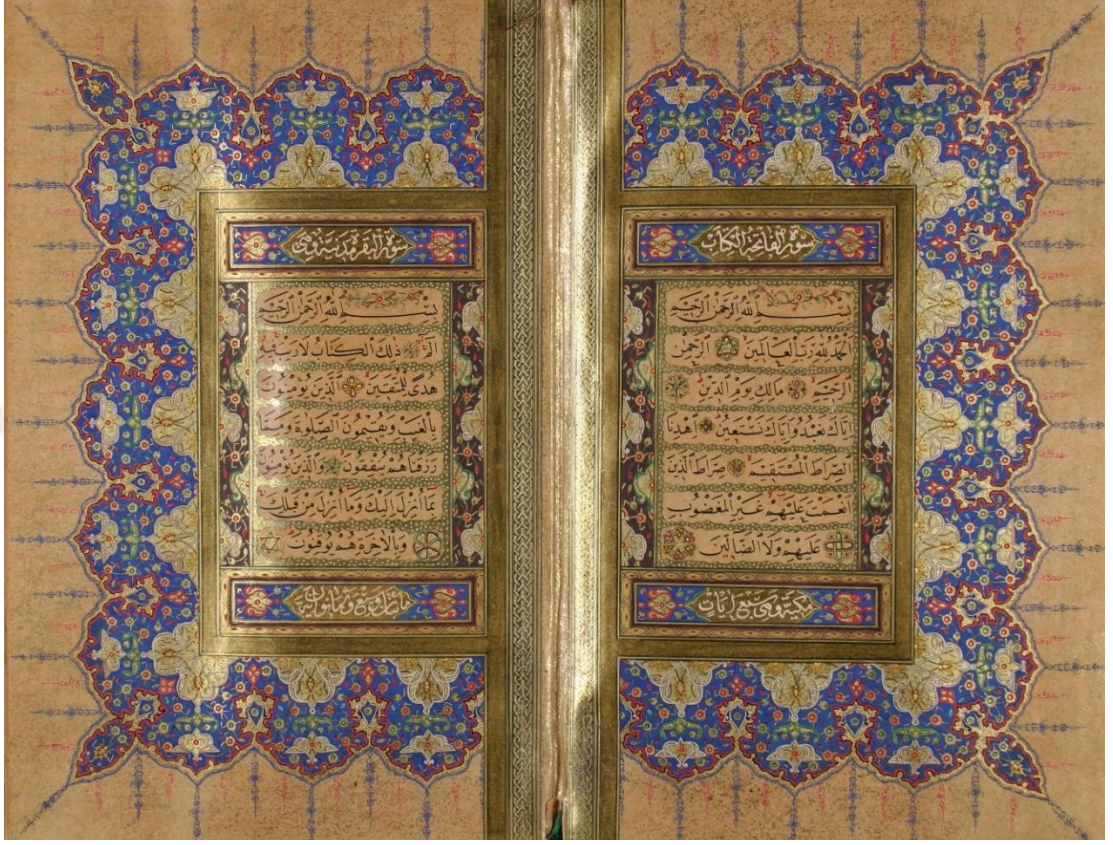 سورة الفاتحة الكتاب
بسم الله الرحمن الرحيم
الحمد لله رب العالمين الرحمن
الرحيم مالك يوم الدين
اياك نعبد واياك نستعين اهدنا
الصراط المستقيم صراط الذين
انعمت عليهم غير المغضوب
عليهم ولا الضالين
مكية وهي سبع ايات
سورة البقرة مدنية وهي
بسم الله الرحمن الرحيم
الم ذلك الكتاب لا ريب فيه
هدى للمتقين الذين يؤمنون
بالغيب ويقيمون الصلوة ومما
رزقناهم ينفقون والذين يؤمنون
بما أنزل اليك وما أنزل من قبلك
وبالآخرة هم يوقنون
وثمانون اية